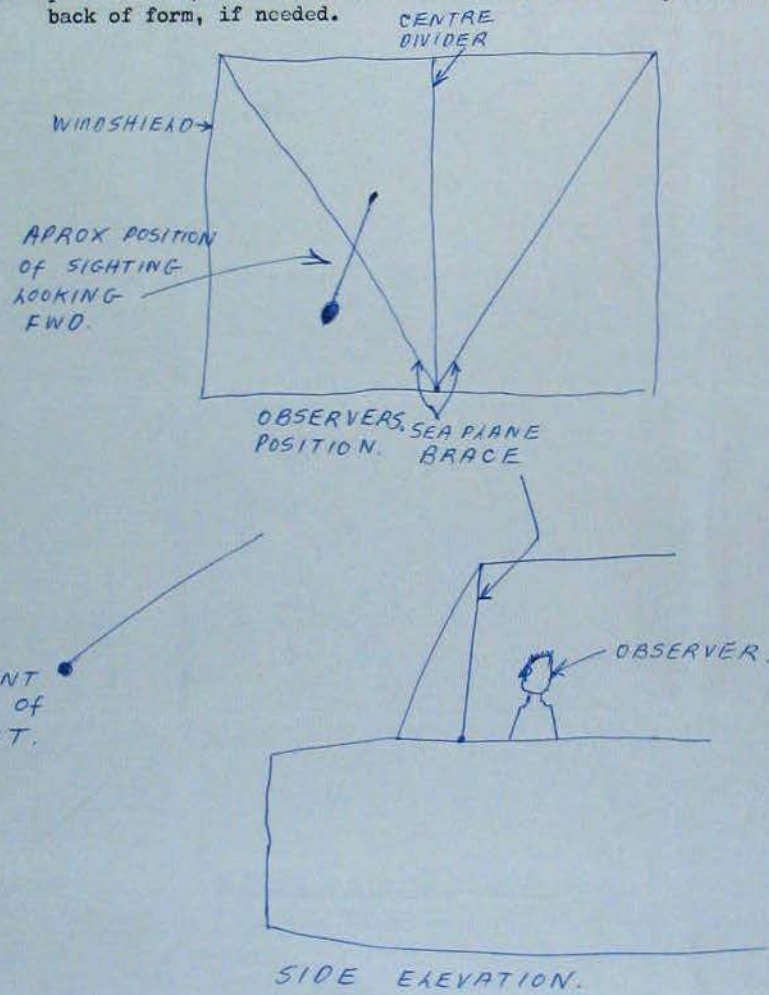 back of form, if needed.
CENTRE
DIVIDER
WINDSHIELD
APROX POSITION
Of SIGHTING
LOOKING
FWD.
OBSERVERS.
POSITION.
SEA PLANE
BRACE
OBSERVER.
NT
of
T.
SIDE ELEVATION.